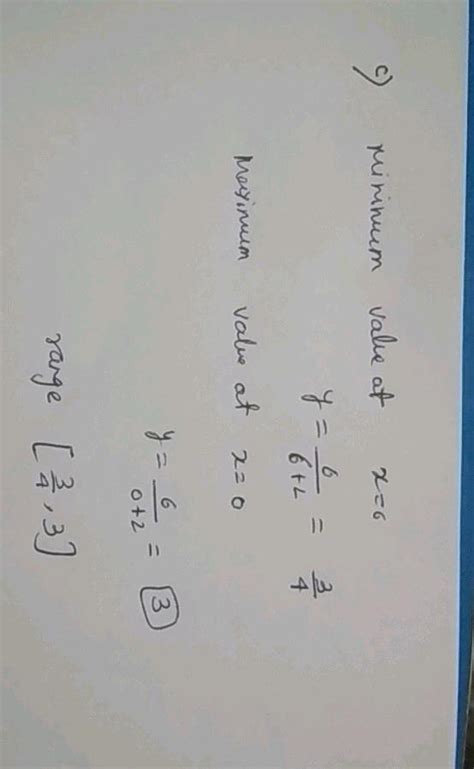 c) Minimum value at x=6
y = 6/6+2 = 3/4
Maximum value at x=0
y = 6/0+2 = 3
range [3/4, 3]